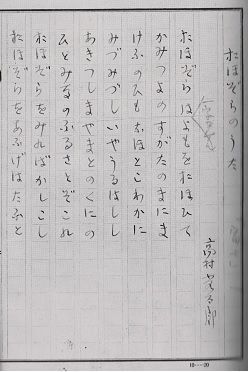 おほぞらのうた
高村光太郎
おほぞらはよもをおほひて
かみつよのすがたのままにま
けふのひもなほとこわかに
みづみづしいやうるはしし
あきつしまやまとのくにの
ひとみなのふるさとぞこれ
おほぞらをみればかしこし
おほぞらをあふげばたふと
10—20